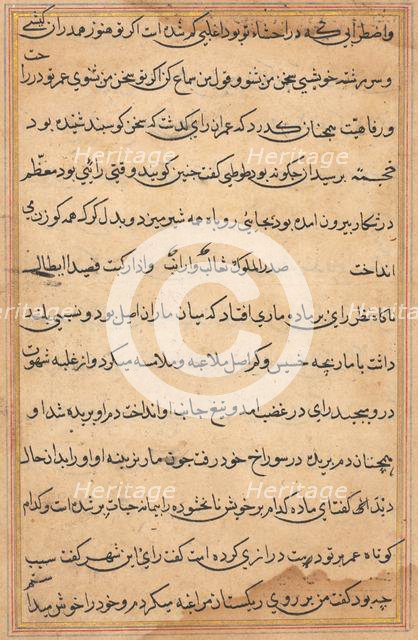 واضطرابی که در احشاء تو بود اغلبی کم شده است اکر تو هنوز همدران کنی
وسررشته خویشی سخن من شنو وقول من سماع کن اکر تو سخن من شنوی عمر تو در راحت
ورفاهیت همچنان کذرد که عمر ان رای کذشت که سخن کوسپند شنیده بود
خجسته پرسید از چکونه بود طوطی کفت چنین کویند وقتی رائی بود معظّم
در شکار بیرون امده بود بجائی روباه همه شیر میزد وبدل کرک همه کوزن می
انداخت صدر الملوک ثعالب وارانب واذا رکب فصیدا ابطال
ناکاه نظر رای بر ماده ماری افتاد که میان ماران اصیل بود ونسبی بلند
داشت با مار بچه خسیس وکم اصل ملاعبه وملامسه میکرد واز غلبه شهوت
در ومیپیچید رای در غضب امد وتیغ جانب او انداخت دم او بریده شد او
همچنان دم بریده در سوراخ خود رفت جون مار نرینه او او را بدان حال
دید کفت ای ماده کدام بر خویش نابخشوده را پیمانه حیات پر شده است وکدام
کوتاه عمر بر تو دست درازی کرده است کفت رای این شهر کفت سبب
چه بود کفت من بر روی ریکستان مراغه میکردم وخود را خوش میداشتم